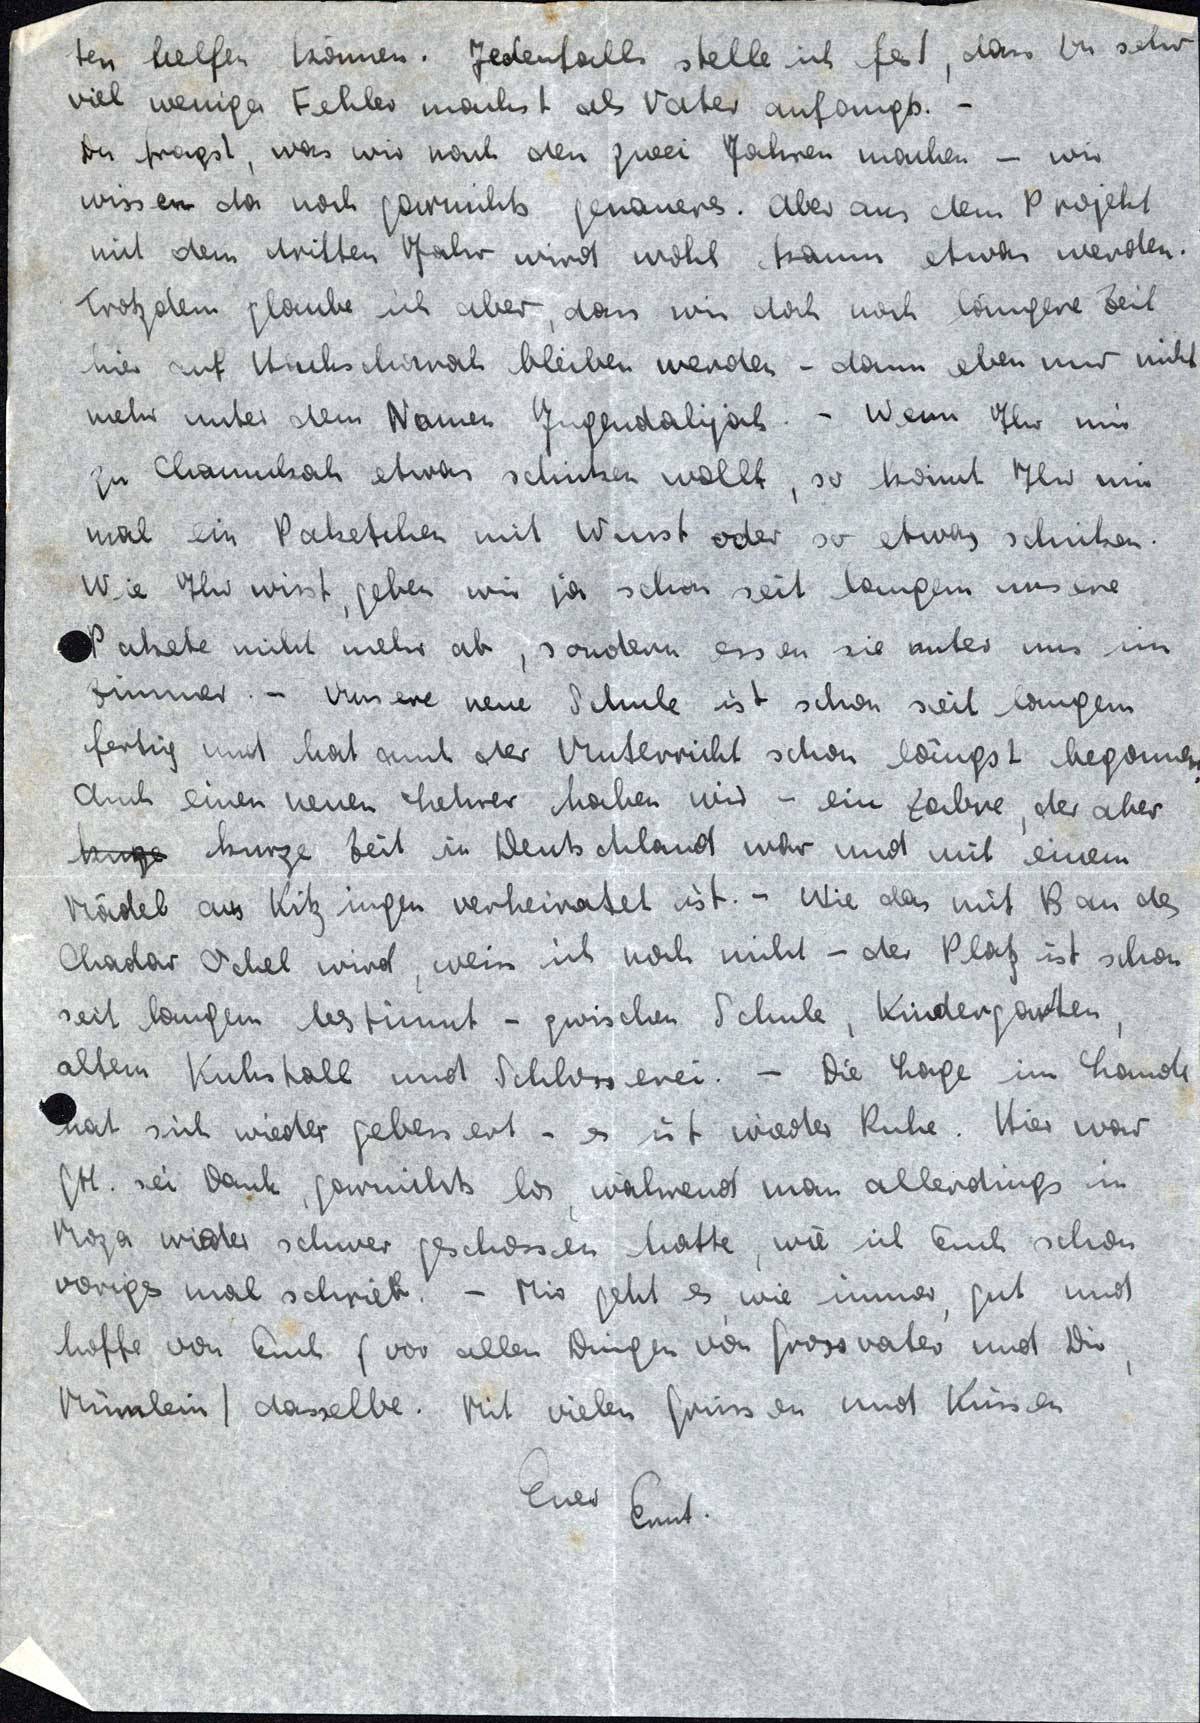 ten helfen können. Jedenfalls stelle ich fest, dass Du sehr
viel weniger Fehler machst als Vater anfangs. -
Du fragst, was wir nach den zwei Jahren machen - wir
wissen da noch garnichts genaueres. Aber aus dem Projekt
mit dem dritten Jahr wird wohl kaum etwas werden.
Trotzdem glaube ich aber, dass wir doch noch längere Zeit
hier auf bleiben werden - dann eben nur nicht
mehr unter dem Namen Jugendalijah. - Wenn Ihr mir
zu Channukah etwas schicken wollt, so könnt Ihr mir
mal ein Paketchen mit Wurst oder so etwas schicken.
Wie Ihr wisst, geben wir ja schon seit langem unsere
Pakete nicht mehr ab, sondern essen sie unter uns im
Zimmer. - Unsere neue Schule ist schon seit langem
fertig und hat auch der Unterricht schon längst begonnen.
Auch einen neuen Lehrer haben wir - ein Zabre, der aber
kurze Zeit in Deutschland war und mit einem
Mädel aus Kitzingen verheiratet ist. - Wie das mit Bau des
Chadar Ochel wird, weiss ich noch nicht - der Platz ist schon
seit langem bestimmt - zwischen Schule, Kindergarten,
altem Kuhstall und Schlosserei. - Die Lage im Lande
hat sich wieder gebessert - es ist wieder Ruhe. Hier war
Gtt. sei Dank, garnichts los, während man allerdings in
Moza wieder schwer geschossen hatte, wie ich Euch schon
voriges mal schrieb. - Mir geht es, wie immer, gut und
hoffe von Euch (vor allen Dingen von Grossvater und Dir,
Mümlein) dasselbe. Mit vielen Grüssen und Küssen
Euer Ernst.